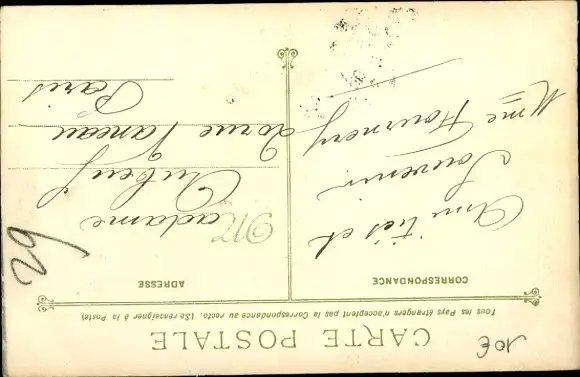 CARTE POSTALE
Tous les Pays étrangers n'acceptent pas la Correspondance au recto. (Se renseigner à la Poste)
CORRESPONDANCE
Amitiés et
Souvenir
Mme Fournery
ADRESSE
Madame
rue Vaneau
Paris
29
10€